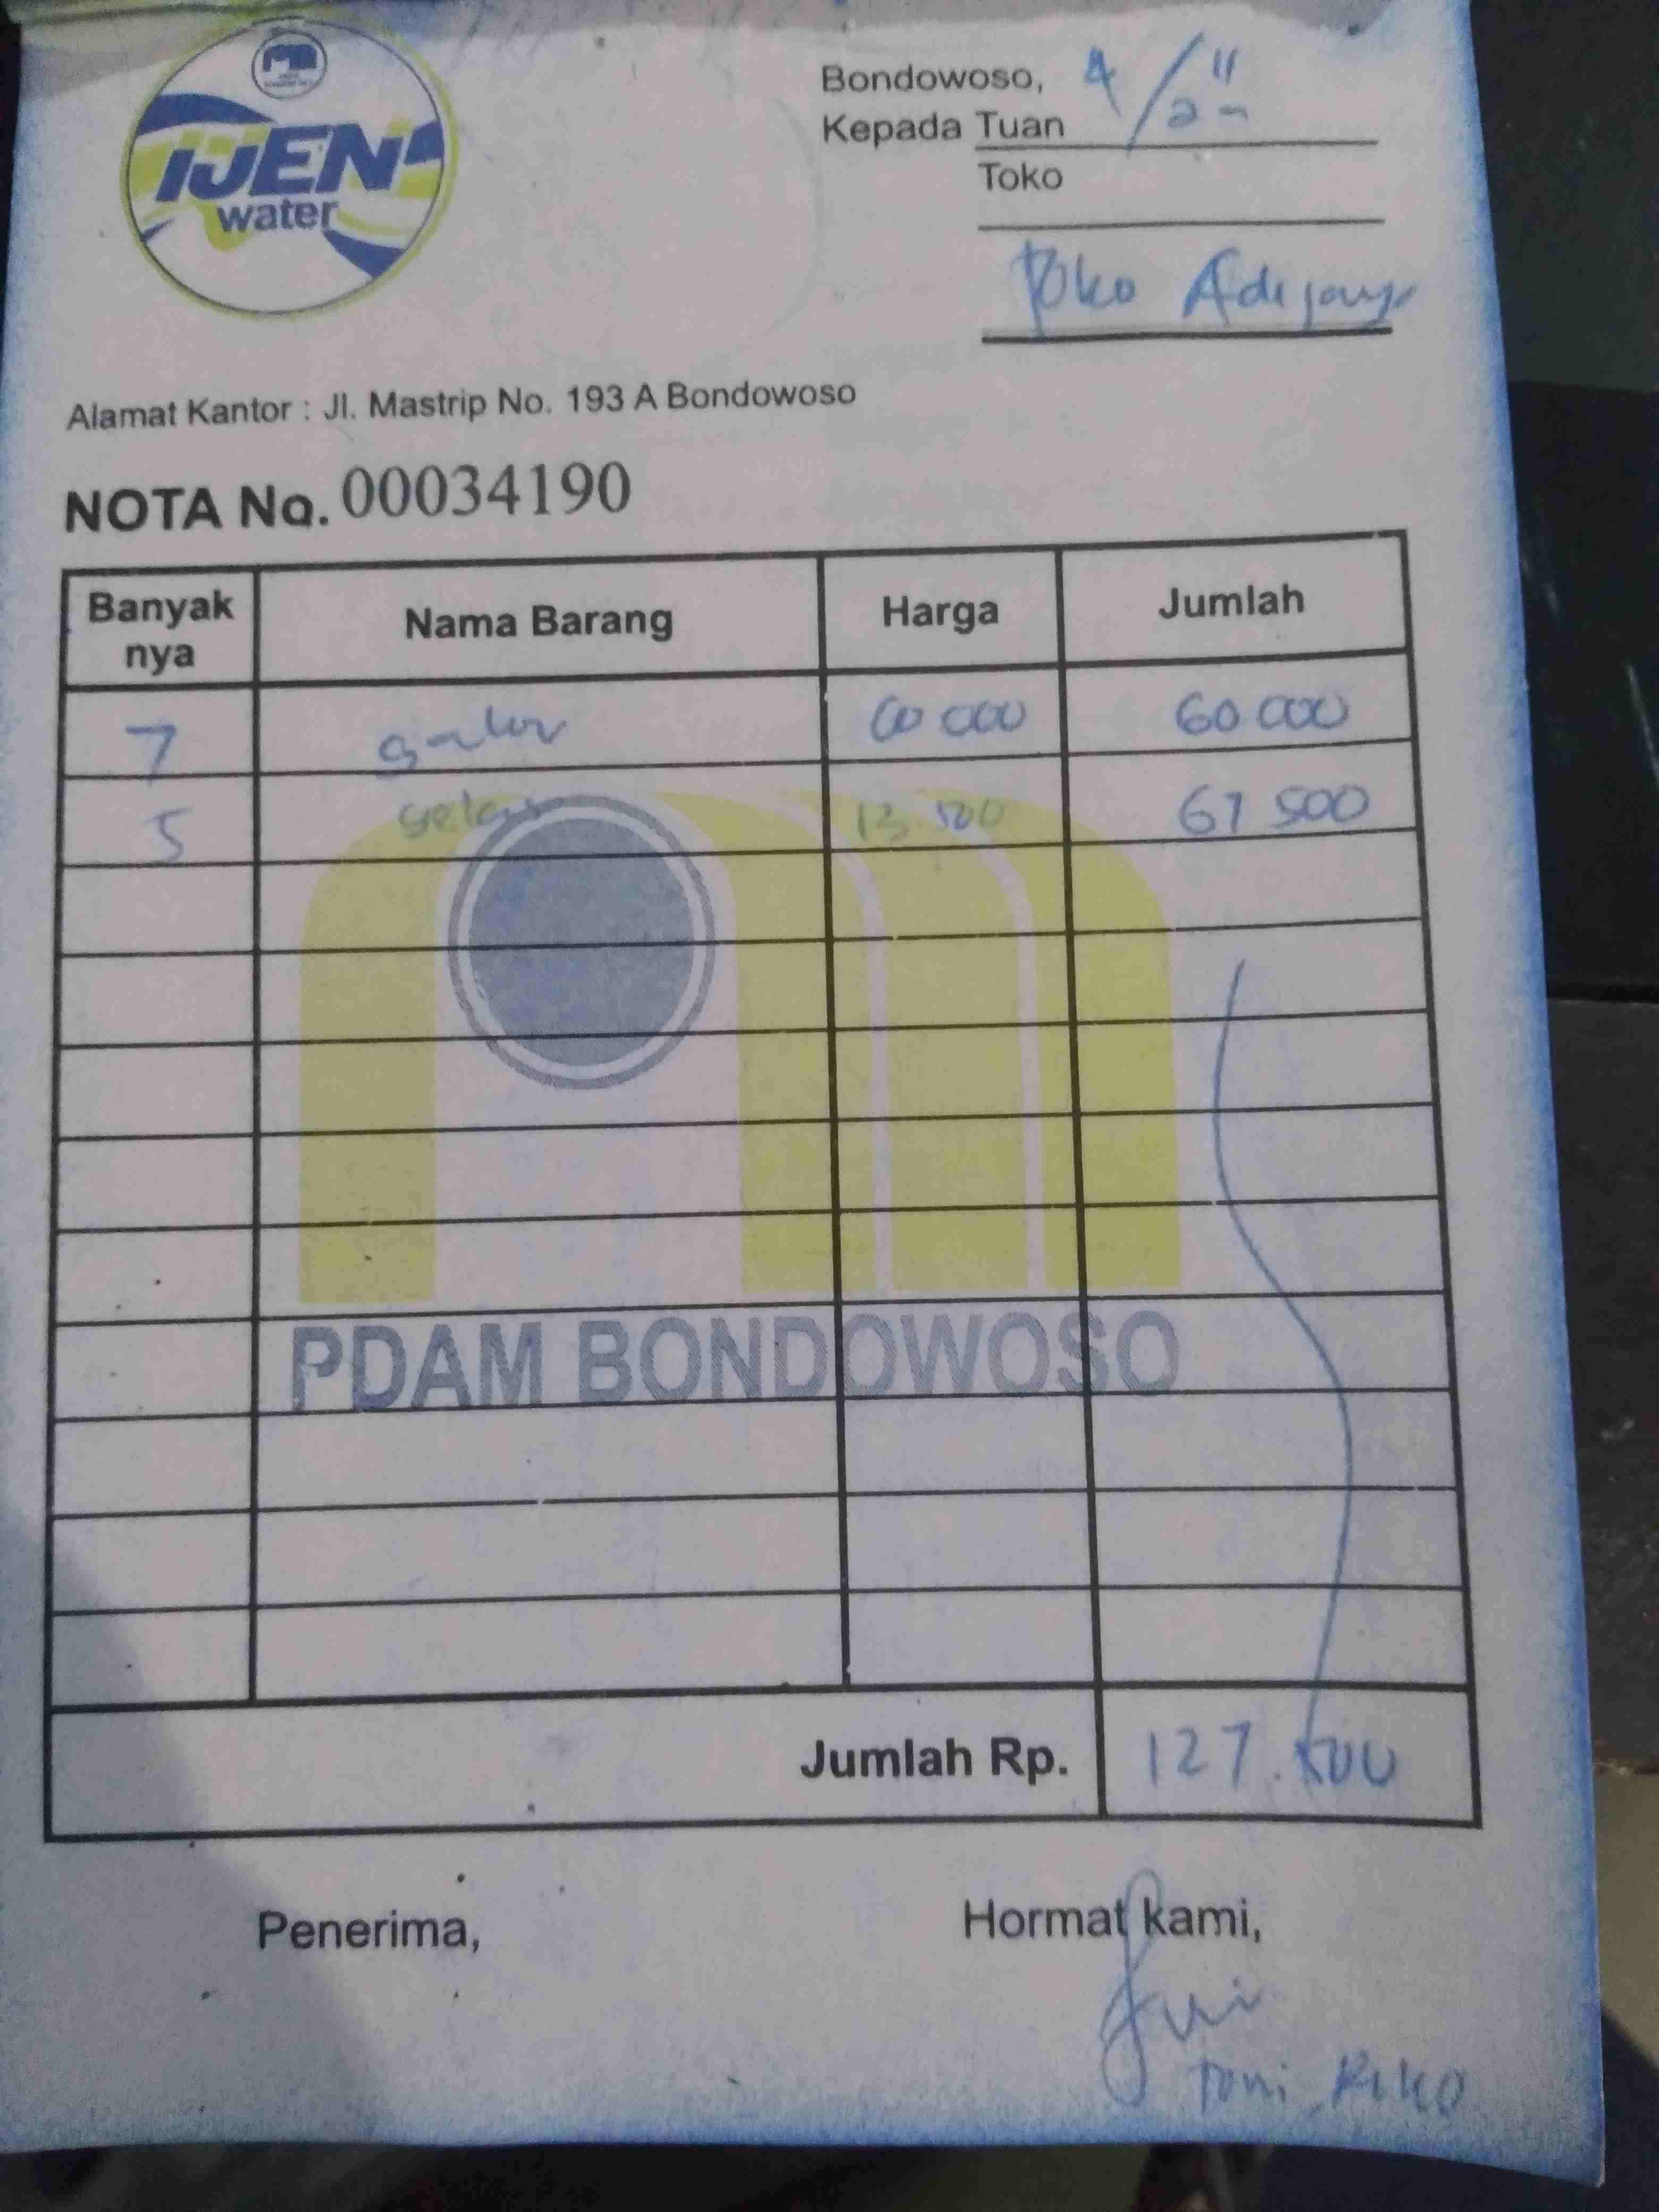 IJEN
water
Bondowoso, 4/11
Kepada Tuan
Toko
Toko Adijaya
Alamat Kantor : Jl. Mastrip No. 193 A Bondowoso
NOTA No. 00034190
Banyak nya Nama Barang Harga Jumlah
7 galon 60 000 60 000
5 gelas 13.500 67 500
PDAM BONDOWOSO
Jumlah Rp. 127.500
Penerima, Hormat kami,
Toni, Riko